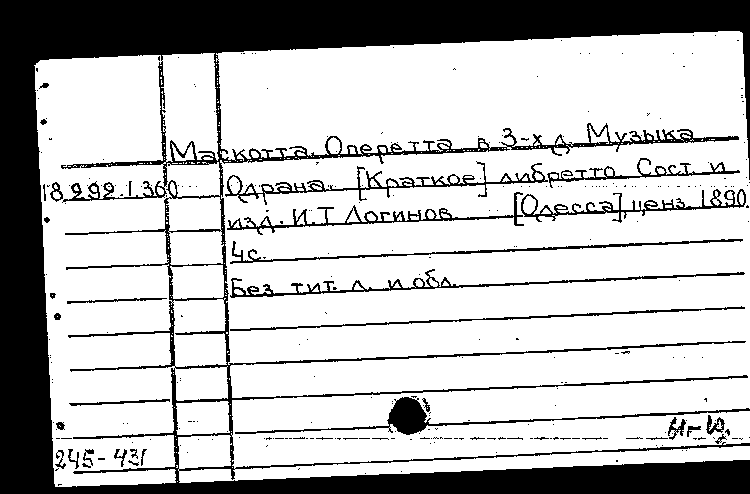 Маскотта. Оперетта в 3-х д. Музыка
18.292.1.360 Одрана. [Краткое] либретто. Сост. и
изд. И.Т Логинов [Одесса], ценз. 1890
4с.
Без тит. л. и обл.
245-431